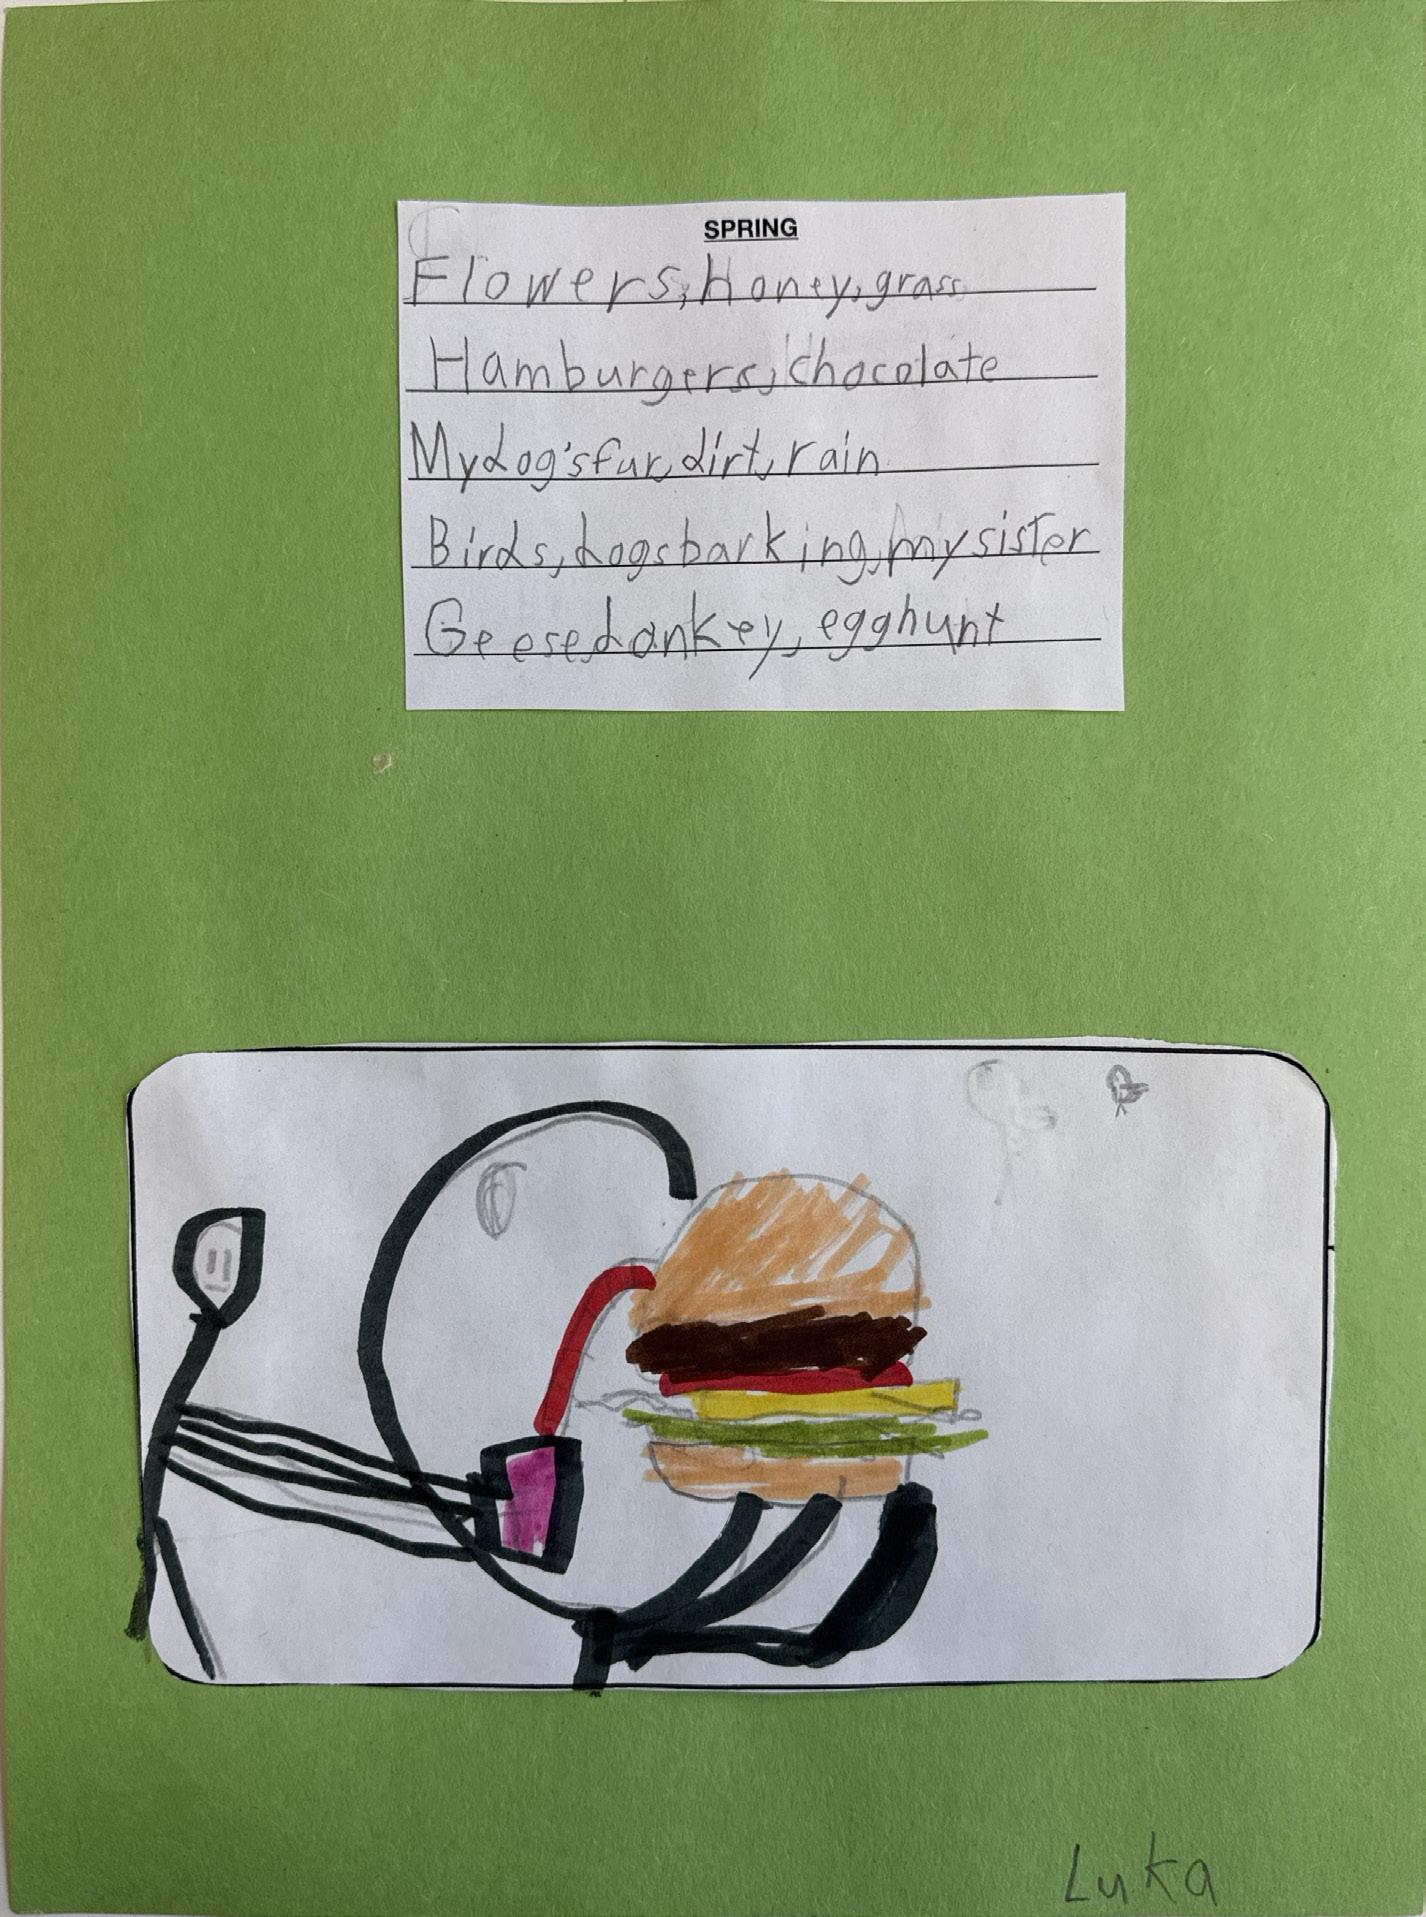 SPRING
Flowers, Honey, grass
Hamburgers, chocolate
My dog's fur, dirt, rain
Birds, dogs barking, my sister
Geese, donkey, egg hunt
Luka